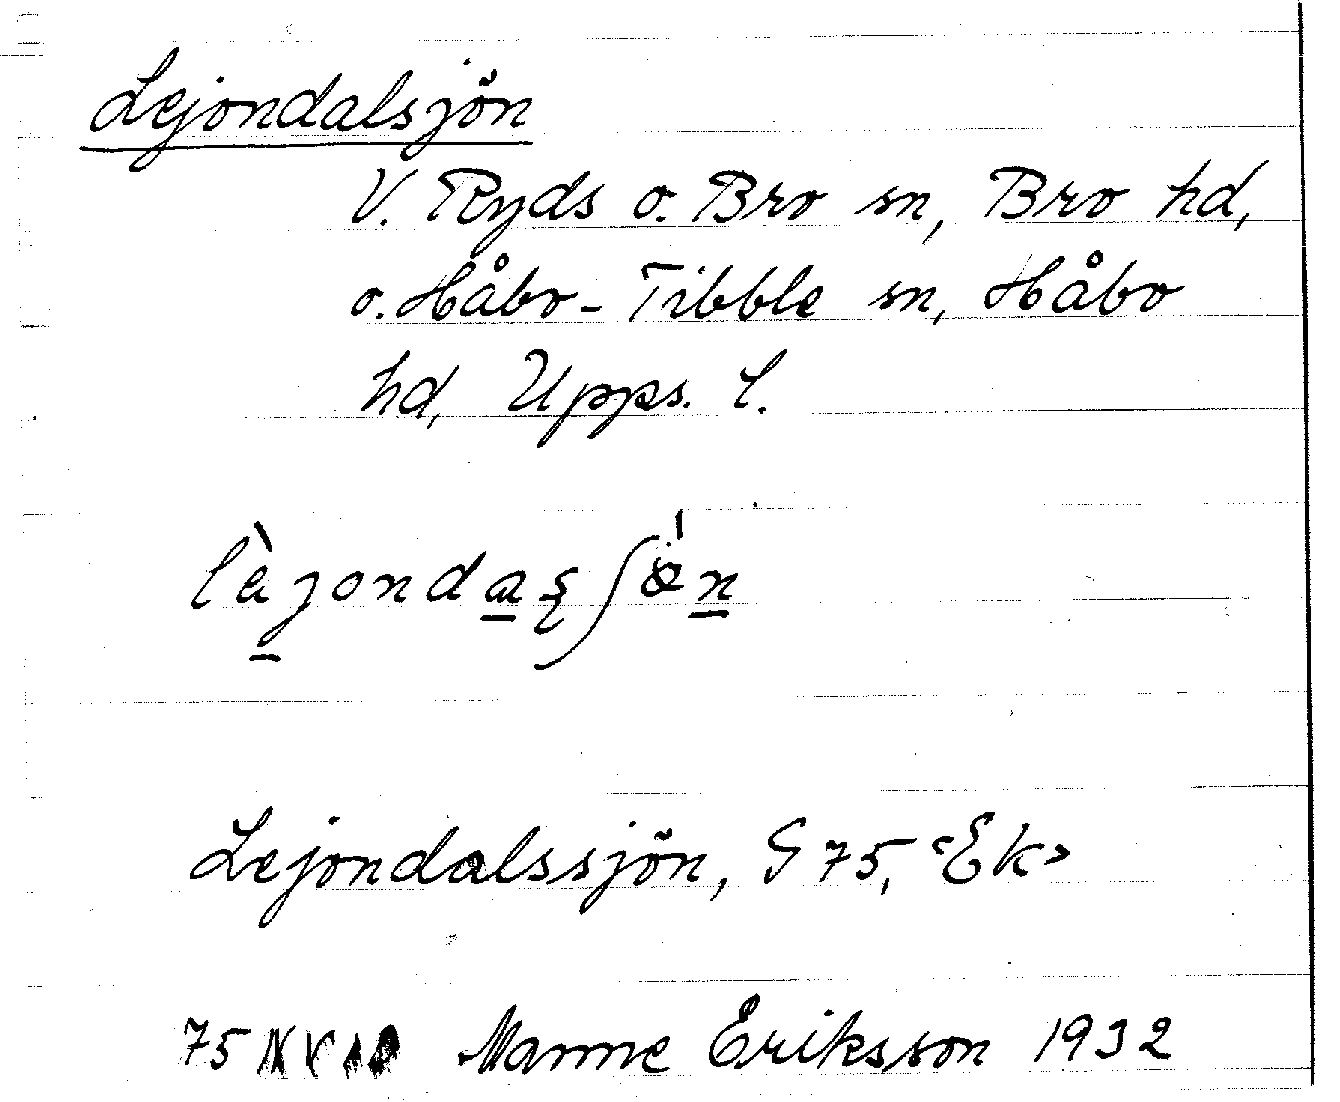 Lejondalsjön
V. Ryds o. Bro sn, Bro hd,
o. Håbo-Tibble sn, Håbo
hd, Upps. l.
Lejondalssjön, G 75, "Ek"
75 Manne Eriksson 1932